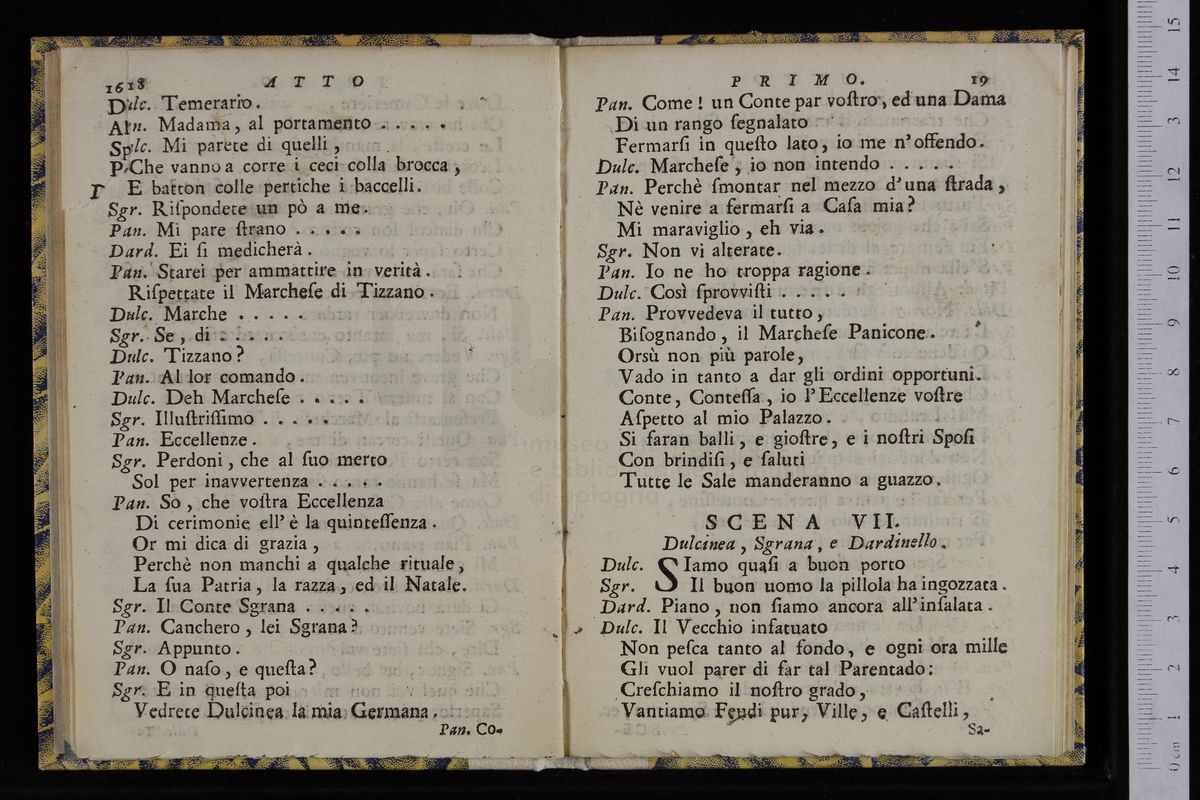 1618 ATTO
Dulc. Temerario.
Madama, al portamento . . . . .
Mi parete di quelli,
Che vanno a corre i ceci colla brocca,
E batton colle pertiche i baccelli.
Sgr. Riſpondete un pò a me.
Pan. Mi pare ſtrano . . . . .
Dard. Ei ſi medicherà.
Pan. Starei per ammattire in verità.
Riſpettate il Marcheſe di Tizzano.
Dulc. Marche . . . . .
Sgr. Se, di . . . . .
Dulc. Tizzano?
Pan. Al lor comando.
Dulc. Deh Marcheſe . . . . .
Sgr. Illuſtriſſimo . . . . .
Pan. Eccellenze.
Sgr. Perdoni, che al ſuo merto
Sol per inavvertenza . . . . .
Pan. So, che voſtra Eccellenza
Di cerimonie ell' è la quinteſſenza.
Or mi dica di grazia,
Perchè non manchi a qualche rituale,
La ſua Patria, la razza, ed il Natale.
Sgr. Il Conte Sgrana . . . . .
Pan. Canchero, lei Sgrana?
Sgr. Appunto.
Pan. O naſo, e queſta?
Sgr. E in queſta poi
Vedrete Dulcinea la mia Germana.
Pan. Co-
PRIMO. 19
Pan. Come! un Conte par voſtro, ed una Dama
Di un rango ſegnalato
Fermarſi in queſto lato, io me n' offendo.
Dulc. Marcheſe, io non intendo . . . .
Pan. Perchè ſmontar nel mezzo d' una ſtrada,
Nè venire a fermarſi a Caſa mia?
Mi maraviglio, eh via.
Sgr. Non vi alterate.
Pan. Io ne ho troppa ragione.
Dulc. Così ſprovviſti . . . . .
Pan. Provvedeva il tutto,
Biſognando, il Marcheſe Panicone.
Orsù non più parole,
Vado in tanto a dar gli ordini opportuni.
Conte, Conteſſa, io l' Eccellenze voſtre
Aſpetto al mio Palazzo.
Si faran balli, e gioſtre, e i noſtri Spoſi
Con brindiſi, e ſaluti
Tutte le Sale manderanno a guazzo.
SCENA VII.
Dulcinea, Sgrana, e Dardinello.
Dulc. SIamo quaſi a buon porto
Sgr. Il buon uomo la pillola ha ingozzata.
Dard. Piano, non ſiamo ancora all' inſalata.
Dulc. Il Vecchio infatuato
Non peſca tanto al fondo, e ogni ora mille
Gli vuol parer di far tal Parentado:
Creſchiamo il noſtro grado,
Vantiamo Feudi pur, Ville, e Caſtelli,
Sa-
museo
e biblio
di bologna
0 cm 1 2 3 4 5 6 7 8 9 10 11 12 3 14 15